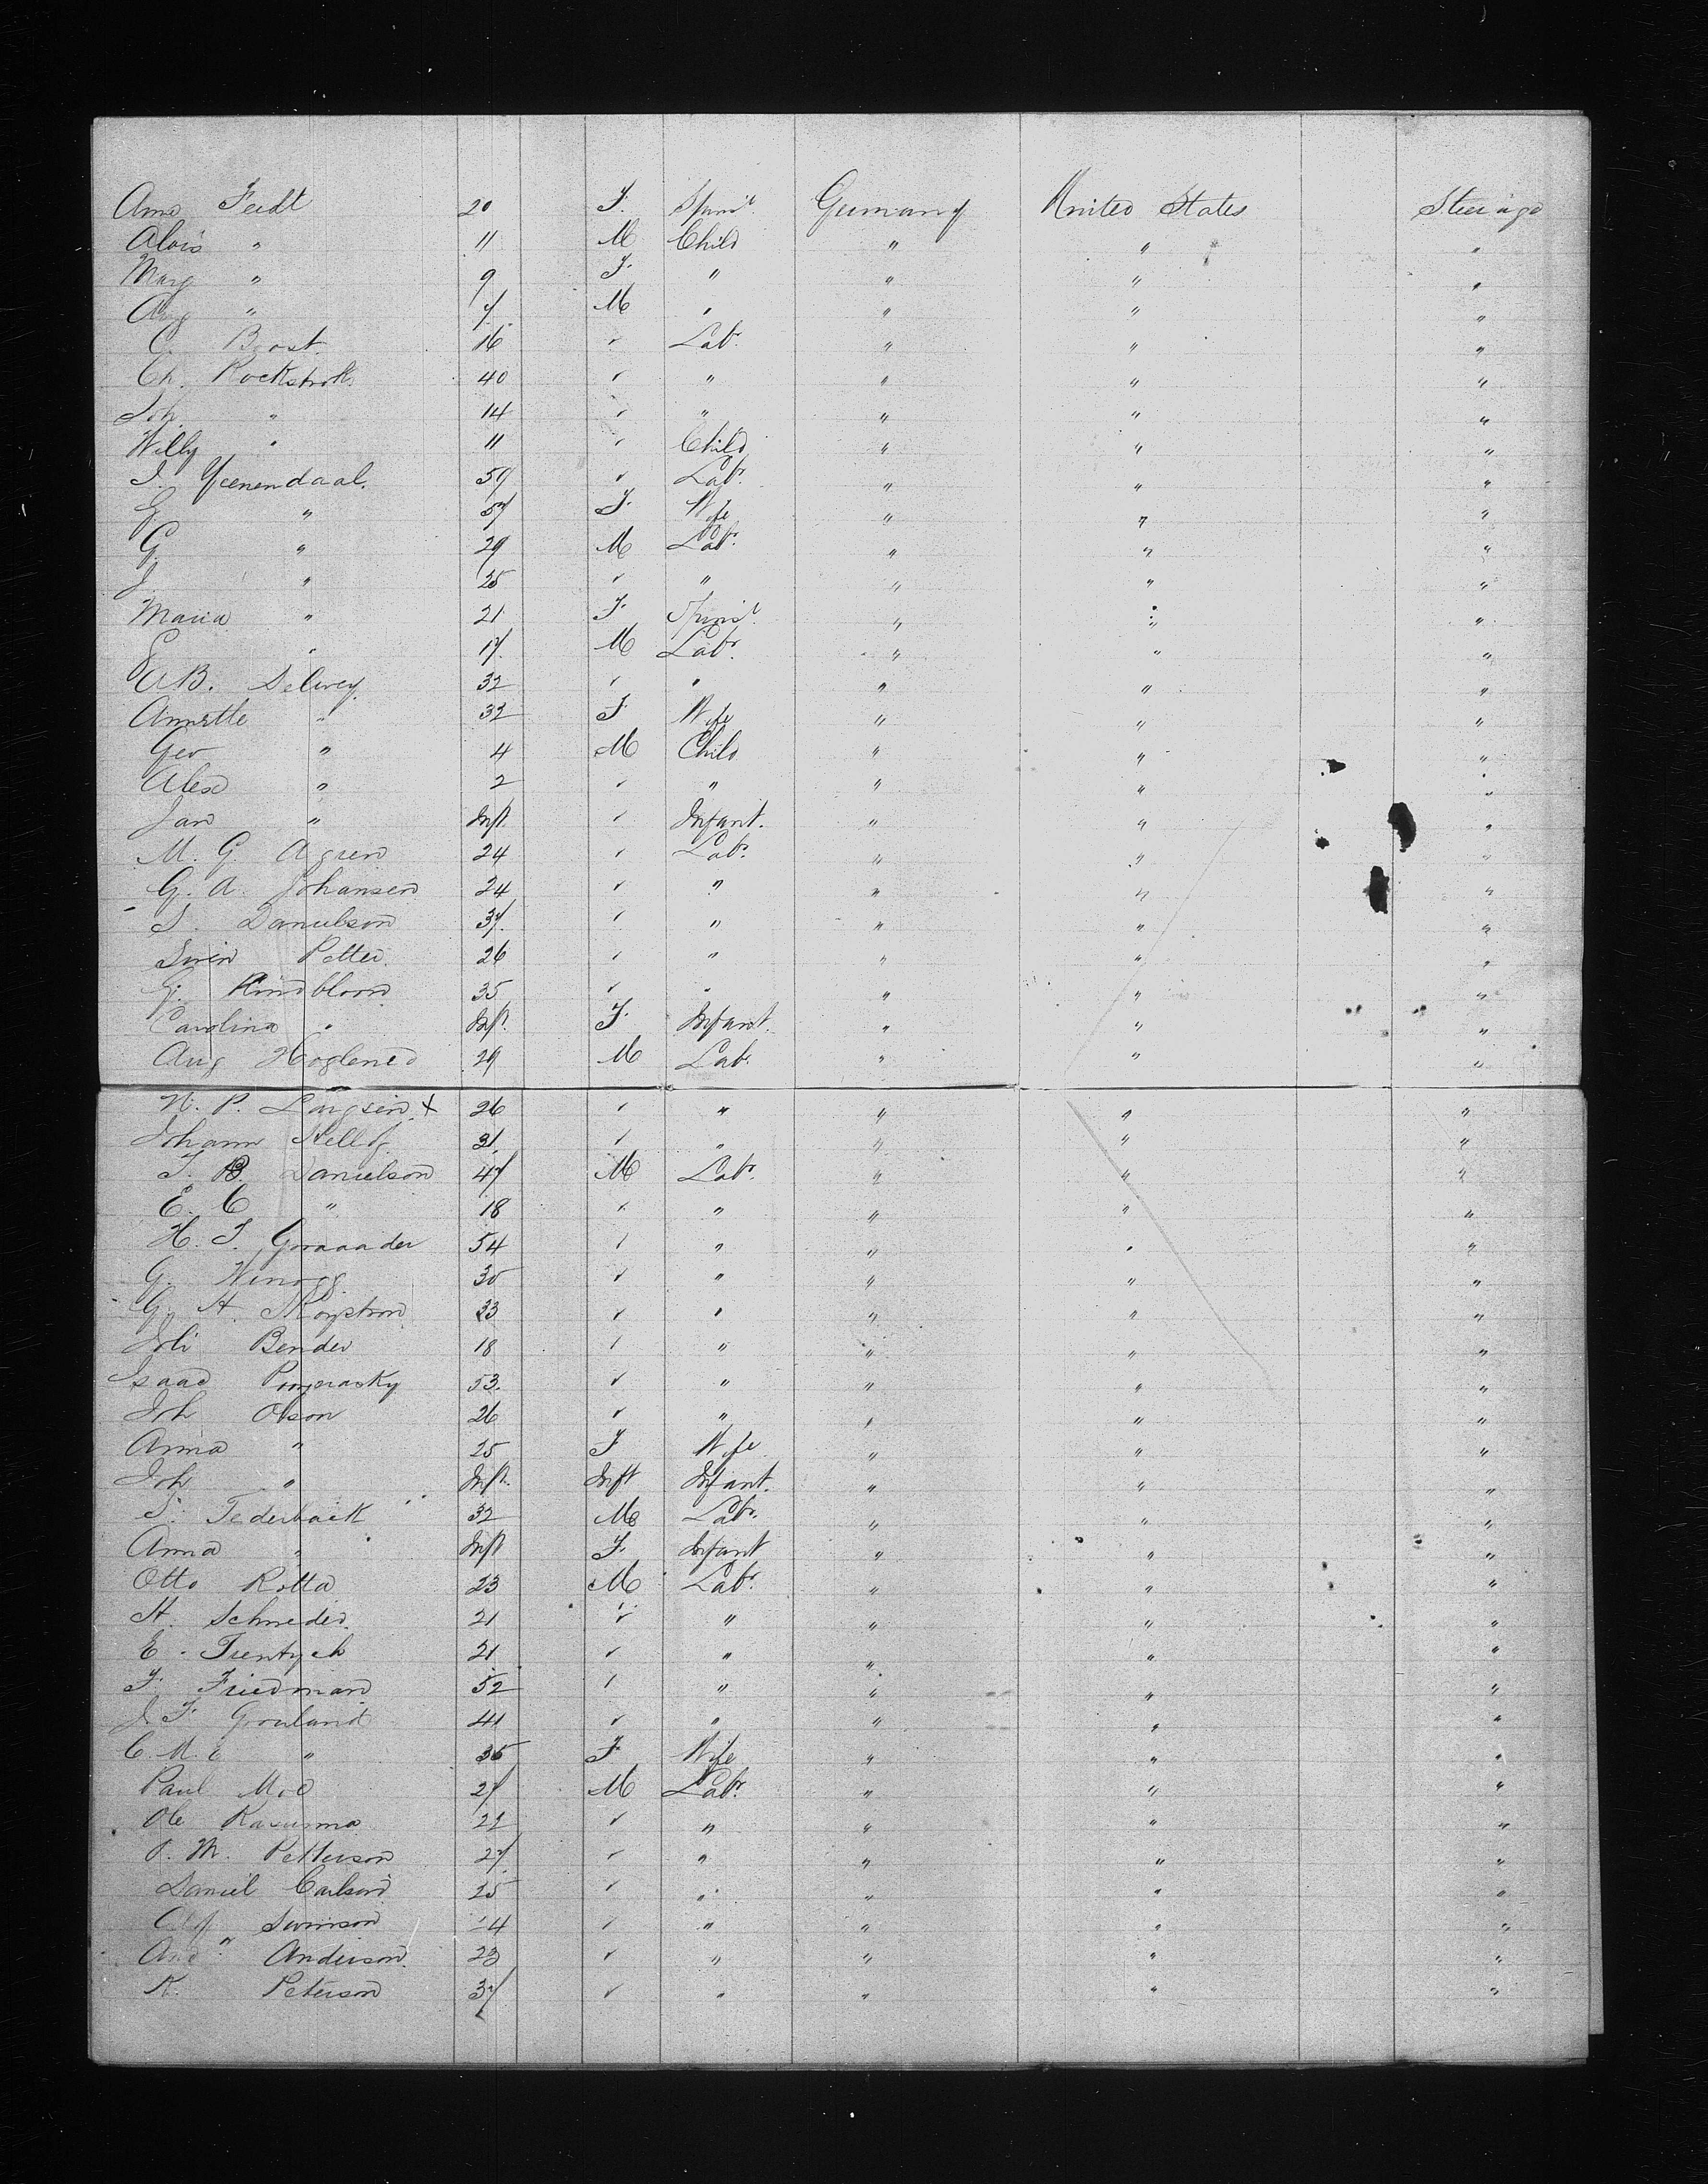 Ana Feidt 20 F. Spins. Germany United States Steerage
Alois " 11 M Child " " "
Marg " 9 F. " " " "
Aug " 7 M " " " "
C. 16 " Lab. " " "
Ch. Rockstroh 40 " " " " "
Joh " 14 " " " " "
Willy " 11 " Child " " "
J. Veenendaal. 59 " Labr. " " "
G " 57 F. Wife " " "
G. " 29 M Labr. " " "
J " 25 " " " " "
Maria " 21 F. Spinst. " " "
G " 17 M Labr. " " "
A B. Selvey 32 " " " " "
Annette " 32 F Wife " " "
Geo " 4 M Child " " "
Alex " 2 " " " " "
Jan " Inft. " Infant. " " "
M. G. Agren 24 " Labr. " " "
G. A. Johansen 24 " " " " "
S. Danielson 37 " " " " "
Sven Petter 26 " " " " "
G. Rindbloom 35 " " " " "
Carolina " Inft. F. Infant. " " "
Aug 29 M Lab. " " "
N. P. + 26 " " " " "
Johann 31. " " " " "
J. B. Danielson 47 M Labr. " " "
E. C " 18 " " " " "
H. J. Graaader 54 " " " " "
G. 30 " " " " "
G. A. 33 " " " " "
Joh Bender 18 " " " " "
Isaac 53. " " " " "
Joh Olson 26 " " " " "
Anna " 25 F Wife " " "
Joh " Inft. Inft Infant. " " "
S. Federback 32 M Labr. " " "
Anna " Inft F. Infant " " "
Otto Rotta 23 M Labr. " " "
H. Schneder. 21 " " " " "
E. 21 " " " " "
F. Friedman 52 " " " " "
J. F. Gronland 41 " " " " "
C. M. C " 35 F. Wife " " "
Paul Moe 27 M Labr. " " "
Ole 22 " " " " "
P. M. Petterson 27 " " " " "
Daniel Carlson 25 " " " " "
Olof Swinson 24 " " " " "
And " Anderson. 23 " " " " "
K. Peterson 37 " " " " "